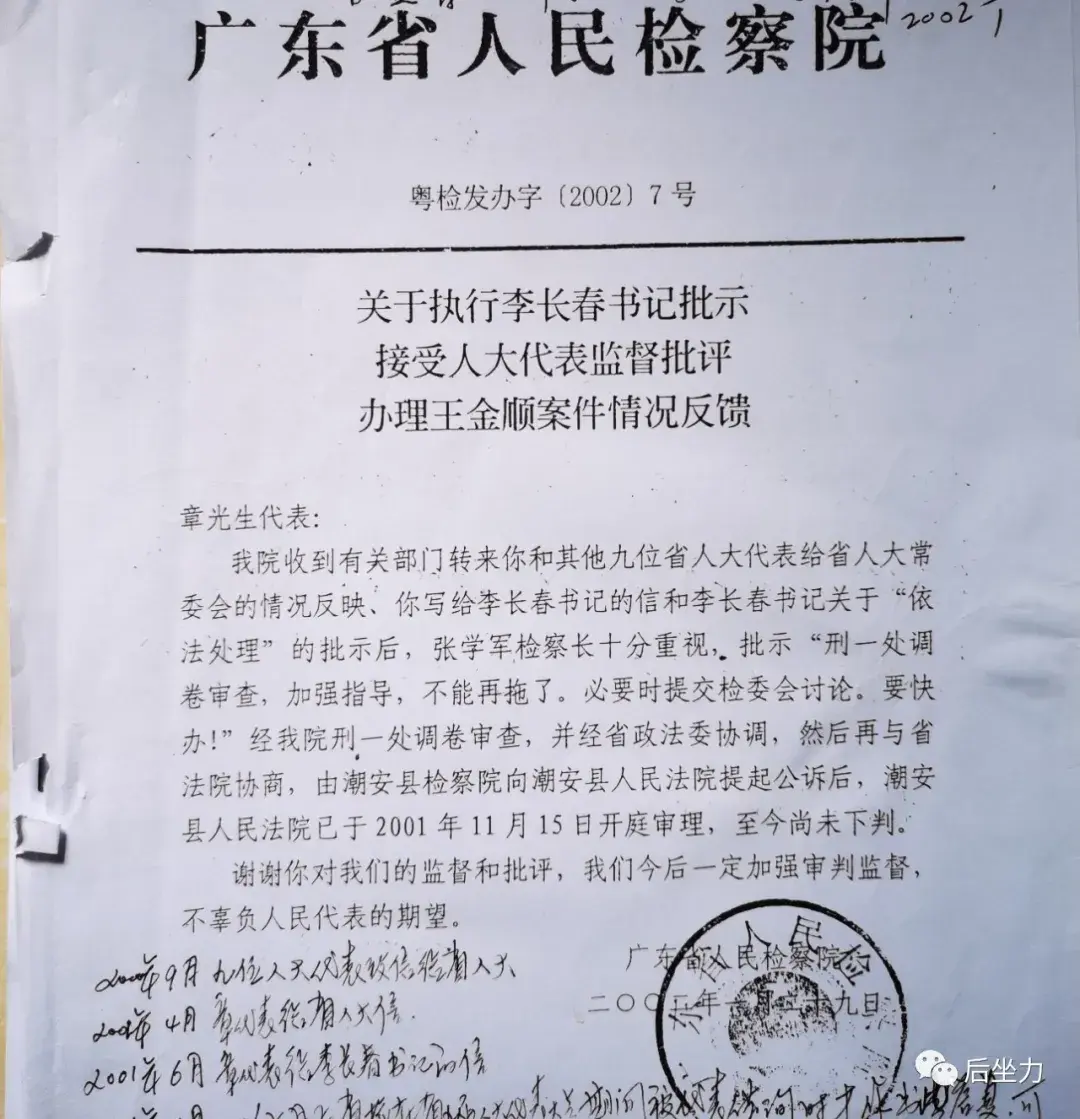 2002
广东省人民检察院
粤检发办字〔2002〕7号
关于执行李长春书记批示
接受人大代表监督批评
办理王金顺案件情况反馈
章光生代表:
我院收到有关部门转来你和其他九位省人大代表给省人大常
委会的情况反映、你写给李长春书记的信和李长春书记关于“依
法处理”的批示后，张学军检察长十分重视，批示“刑一处调
卷审查，加强指导，不能再拖了。必要时提交检委会讨论。要快
办!”经我院刑一处调卷审查，并经省政法委协调，然后再与省
法院协商，由潮安县检察院向潮安县人民法院提起公诉后，潮安
县人民法院已于2001年11月15日开庭审理，至今尚未下判。
谢谢你对我们的监督和批评，我们今后一定加强审判监督，
不辜负人民代表的期望。
广东省人民检察院
二〇〇二年一月二十九日
9月九位人大代表致信给省人大
4月章代表给省人大信.
2001年6月章代表给李长春书记的信
后坐力